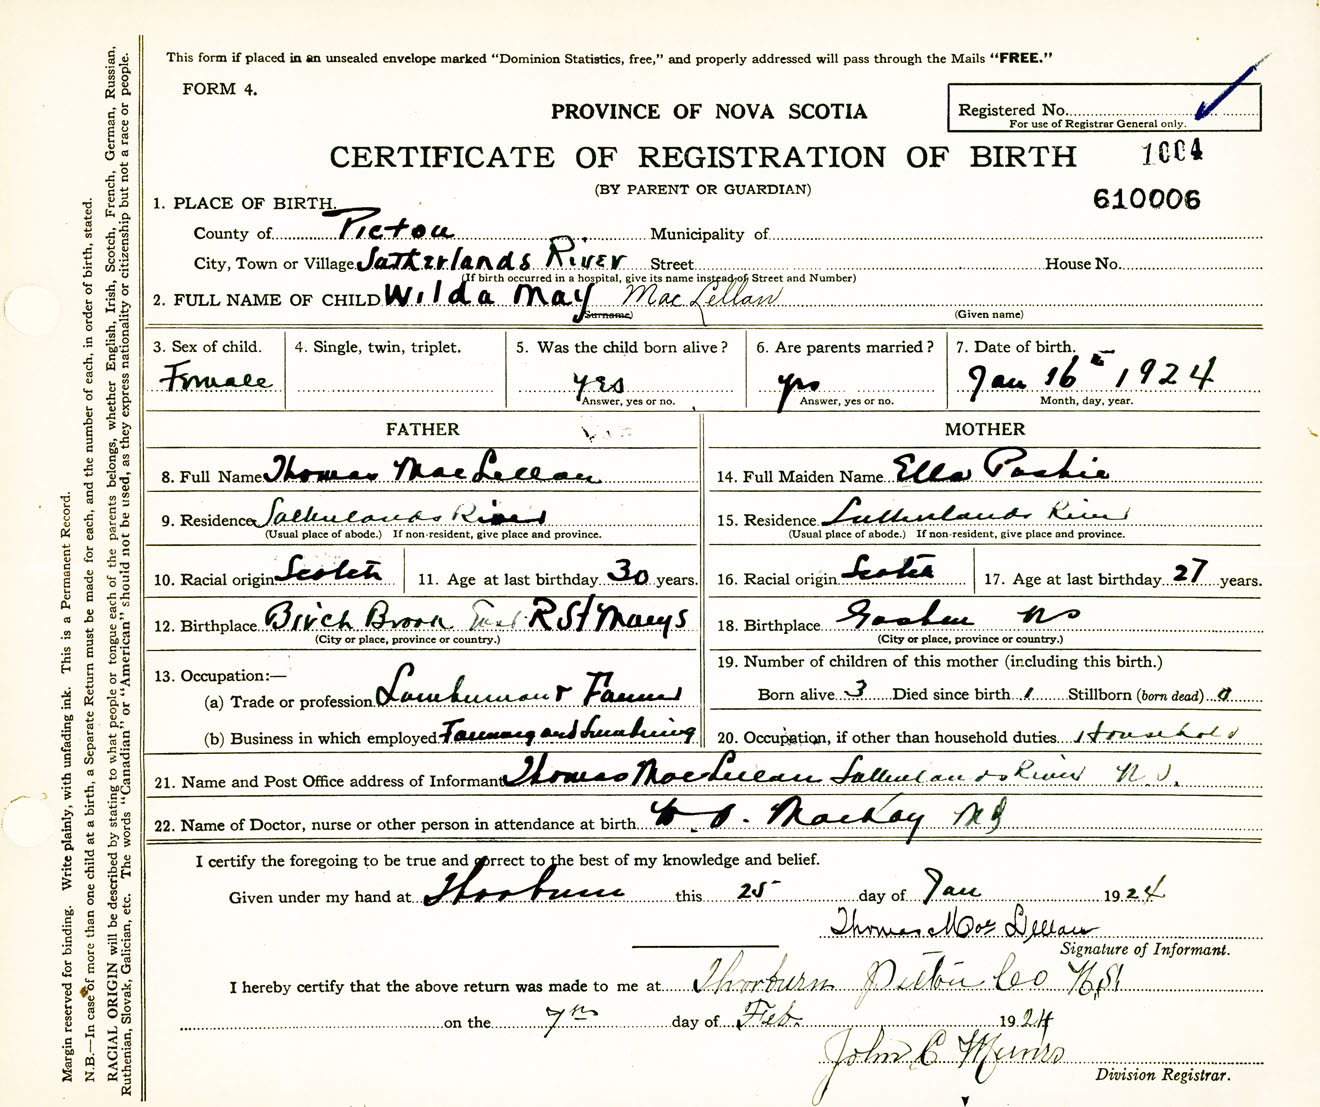 This form if placed in an unsealed envelope marked “Dominion Statistics, free,” and properly addressed will pass through the Mails “FREE.”
FORM 4.
PROVINCE OF NOVA SCOTIA
Registered No.
For use of Registrar General only.
CERTIFICATE OF REGISTRATION OF BIRTH
1004
(BY PARENT OR GUARDIAN)
610006
1. PLACE OF BIRTH.
County of Pictou Municipality of
City, Town or Village Sutherlands River Street House No.
(If birth occurred in a hospital, give its name instead of Street and Number)
2. FULL NAME OF CHILD Wilda May MacLellan
(Surname) (Given name)
3. Sex of child. 4. Single, twin, triplet. 5. Was the child born alive? 6. Are parents married? 7. Date of birth.
Female yes yes Jan 16th 1924
Answer, yes or no. Answer, yes or no. Month, day, year.
FATHER MOTHER
8. Full Name Thomas MacLellan 14. Full Maiden Name Ella
9. Residence Sutherlands River 15. Residence Sutherlands River
(Usual place of abode.) If non-resident, give place and province. (Usual place of abode.) If non-resident, give place and province.
10. Racial origin Scotch 11. Age at last birthday 30 years. 16. Racial origin Scotch 17. Age at last birthday 27 years.
12. Birthplace Birch Brook R St Marys 18. Birthplace Goshen NS
(City or place, province or country.) (City or place, province or country.)
13. Occupation:— 19. Number of children of this mother (including this birth.)
(a) Trade or profession Lumberman & Farmer Born alive 3 Died since birth 1 Stillborn (born dead) 0
(b) Business in which employed Farming and Lumbering 20. Occupation, if other than household duties Household
21. Name and Post Office address of Informant Thomas MacLellan Sutherlands River N.S.
22. Name of Doctor, nurse or other person in attendance at birth MacKay MD
I certify the foregoing to be true and correct to the best of my knowledge and belief.
Given under my hand at Thorburn this 25 day of Jan 1924
Thomas MacLellan
Signature of Informant.
I hereby certify that the above return was made to me at Thorburn Pictou Co N.S.
on the 7th day of Feb. 1924
John C Munro
Division Registrar.
Margin reserved for binding. Write plainly, with unfading ink. This is a Permanent Record.
N.B.—In case of more than one child at a birth, a Separate Return must be made for each, and the number of each, in order of birth, stated.
RACIAL ORIGIN will be described by stating to what people or tongue each of the parents belongs, whether English, Irish, Scotch, French, German, Russian,
Ruthenian, Slovak, Galician, etc. The words “Canadian” or “American” should not be used, as they express nationality or citizenship but not a race or people.